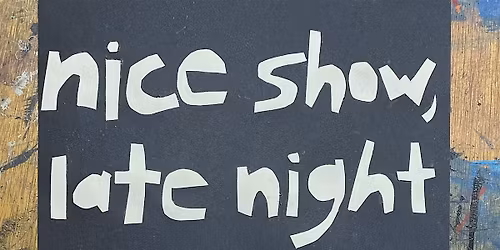 nice show,
late night